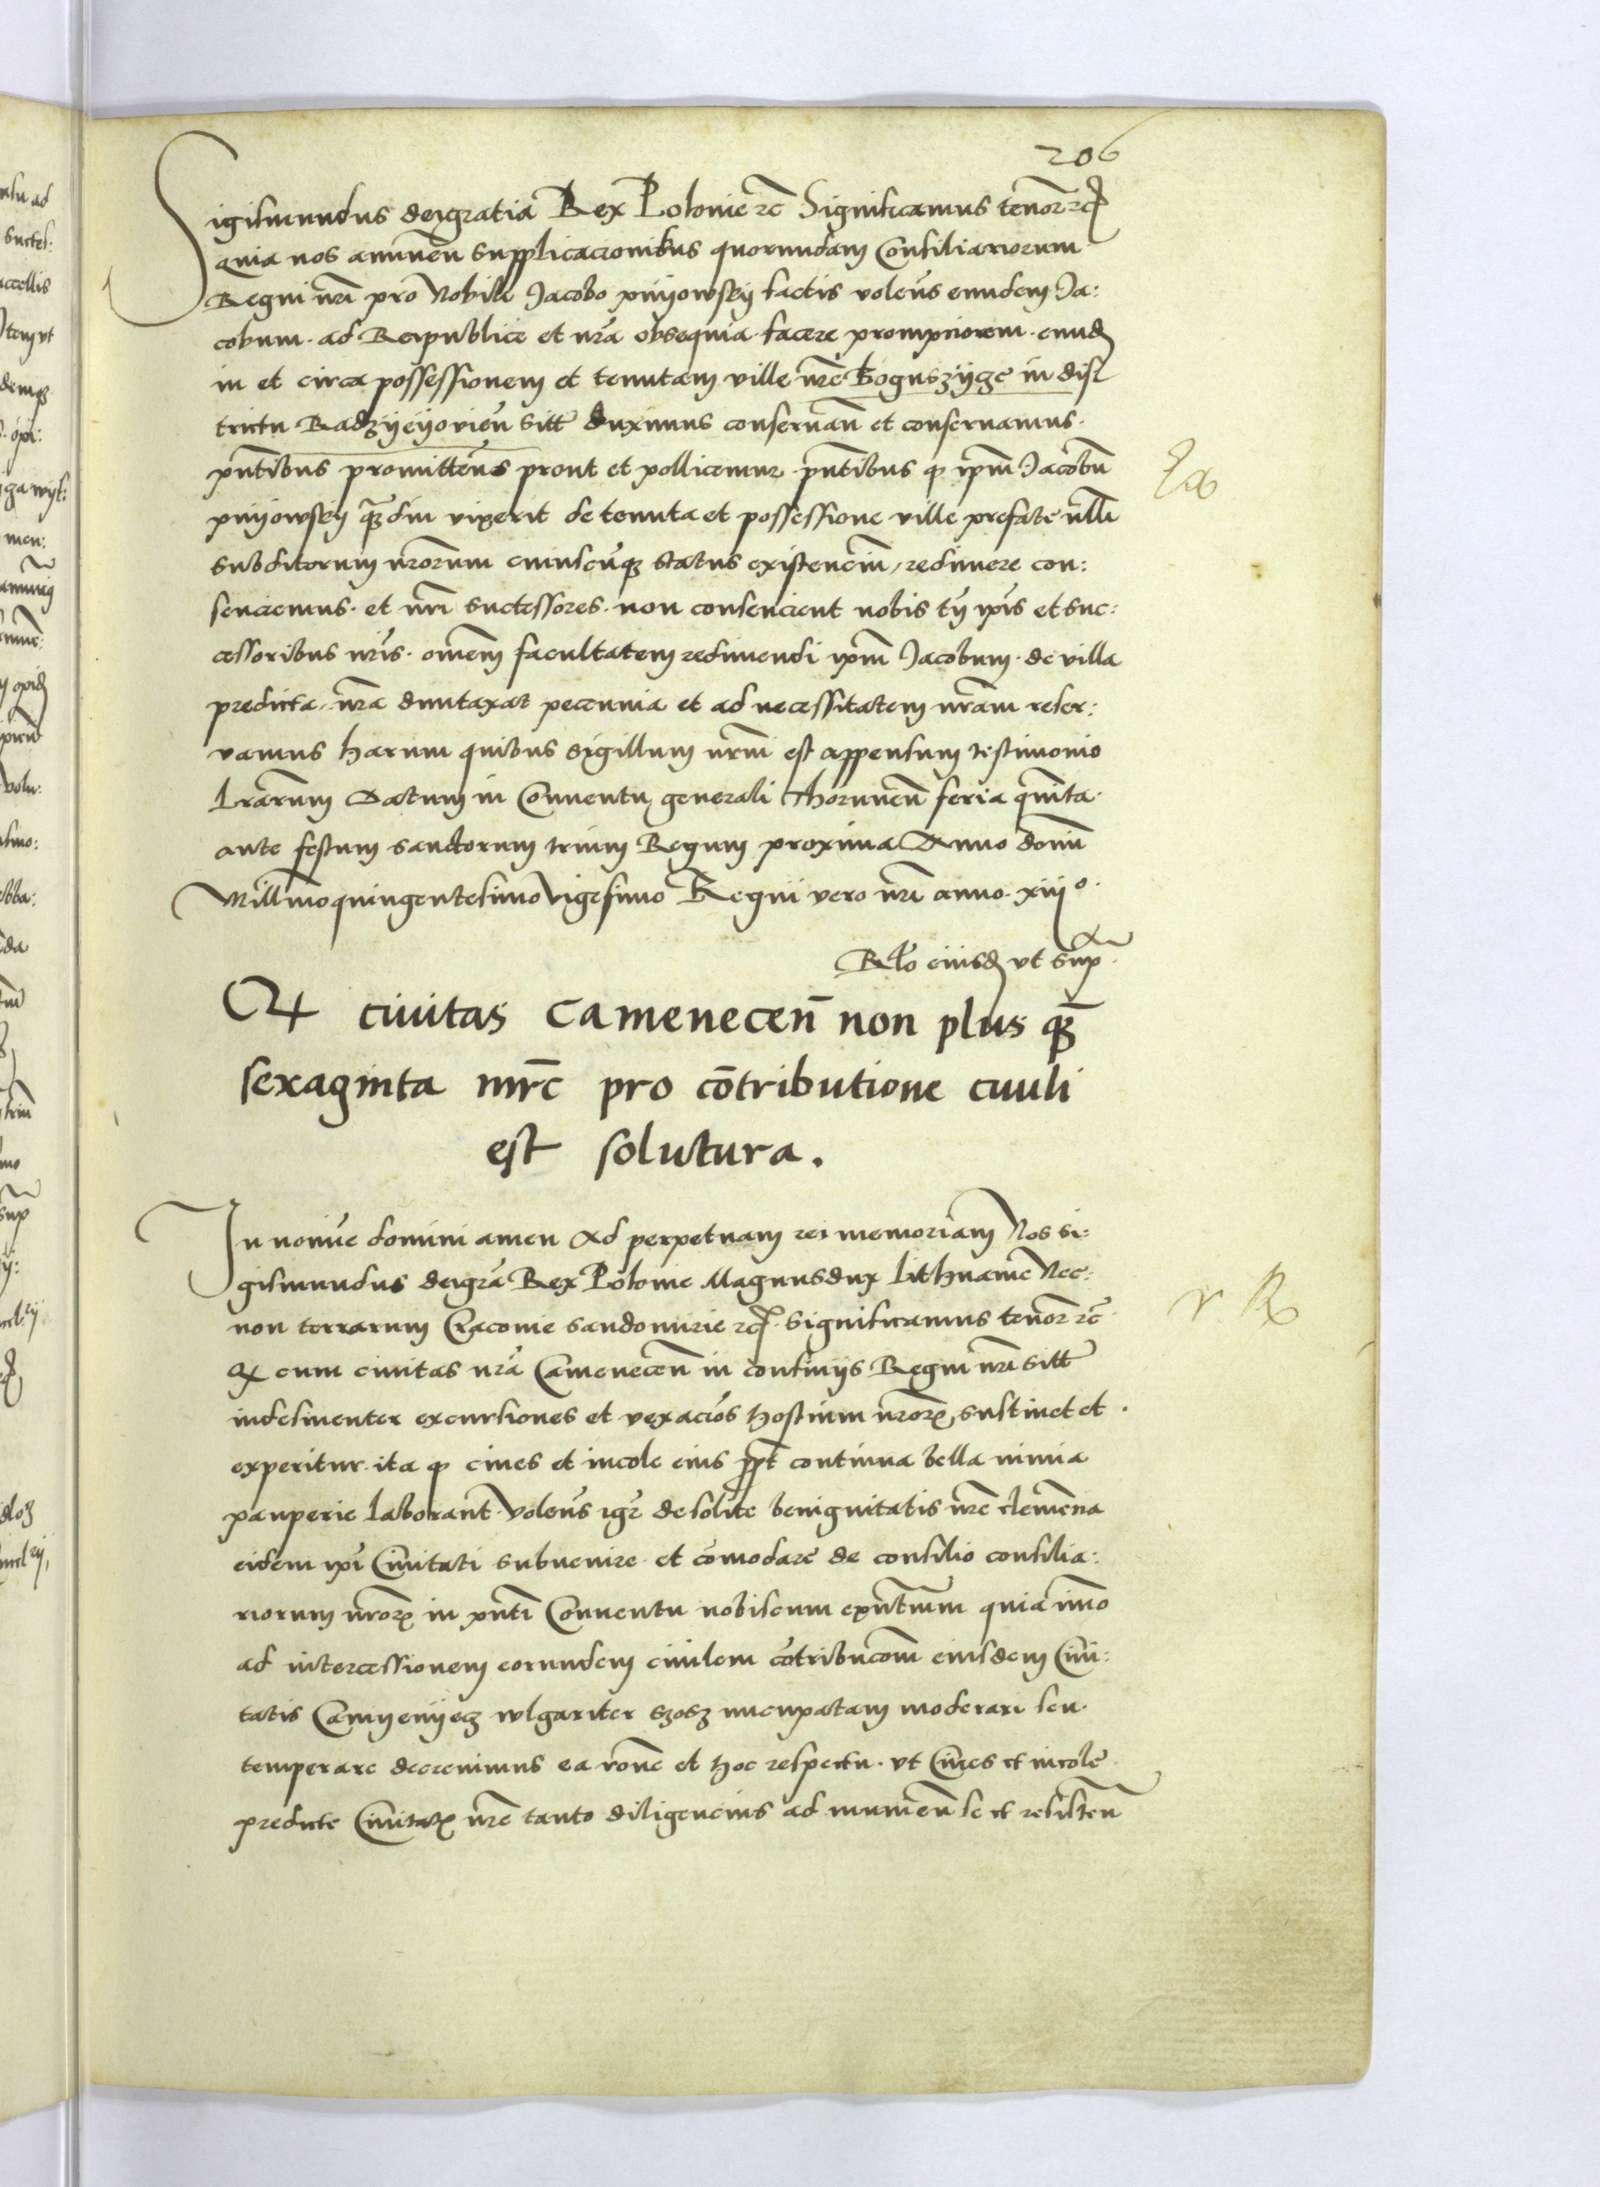 206
Sigismundus deigratia Rex Polonie rc Significamus tenor rc
quia nos annuen supplicacionibus quorundam Consiliariorum
Regni nri pro Nobili Jacobo pnijowskij factis volens eundem Ja:
cobum ad Reipublice et nra obsequia facere prompciorem eund
in et circa possessionem et tenutam ville nre Boguszijcze in dist
trictu Radzijeijovien sitt duximus conservan et conservamus
pntibus promittens prout et pollicemur pntibus q ipm Jacobu
pnijowskij qdiu vixerit de tenuta et possessione ville prefate nlli
subditorum nrorum cuiuscuq status existencium, redimere con:
senciemus. et nri successores. non consencient nobis tn ipis et suc:
cessoribus nris. omem facultatem redimendi ipm Jacobum de villa
predicta, nra duntaxat pecunia et ad necessitatem nram reser:
vamus harum quibus sigillum nrm est appensum testimonio
lrarum Datum in Conventu generali Thorunen feria quinta
ante festum sanctorum trium Regum proxima Anno domi
Millimo quingentesimo vigesimo Regni vero nri anno xiiii o
Rlo eiusd ut sup
Q civitas Camenecen non plus q
sexaginta mrc pro cotributione civili
est solutura.
In noie domini amen Ad perpetuam rei memoriam Nos Si:
gismundus deigra Rex Polonie Magnusdux Lithuanie Nec:
non terrarum Cracovie Sandomirie rc Significamus tenor rc
Q cum civitas nra Camenecen in confinijs Regni nri sitt
indesinenter excursiones et vexacios hostium nror sustinet et
experitur ita q cives et incole eius ppt continua bella nimia
pauperie laborant. volens igr de solite benignitatis nre clemencia
eidem ipi Civitati subvenire et comodare de consilio consilia:
riorum nror in pnti Conventu nobiscum exntium quia imo
ad intercessionem eorundem civilem cotribucom eiusdem Civi:
tatis Camijenijecz wlgariter szosz nucupatam moderari seu
temperare decrevimus ea rone et hoc respectu. ut Cives et incole
predicte Civitat nre tanto diligencius ad munien se et resisten